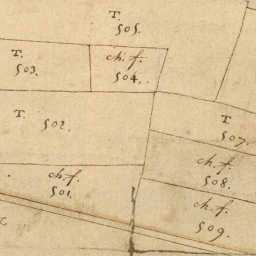 T.
505.
T.
503.
ch. f.
504.
T.
502.
T
507.
ch. f.
508.
ch. f.
501.
ch. f.
509.